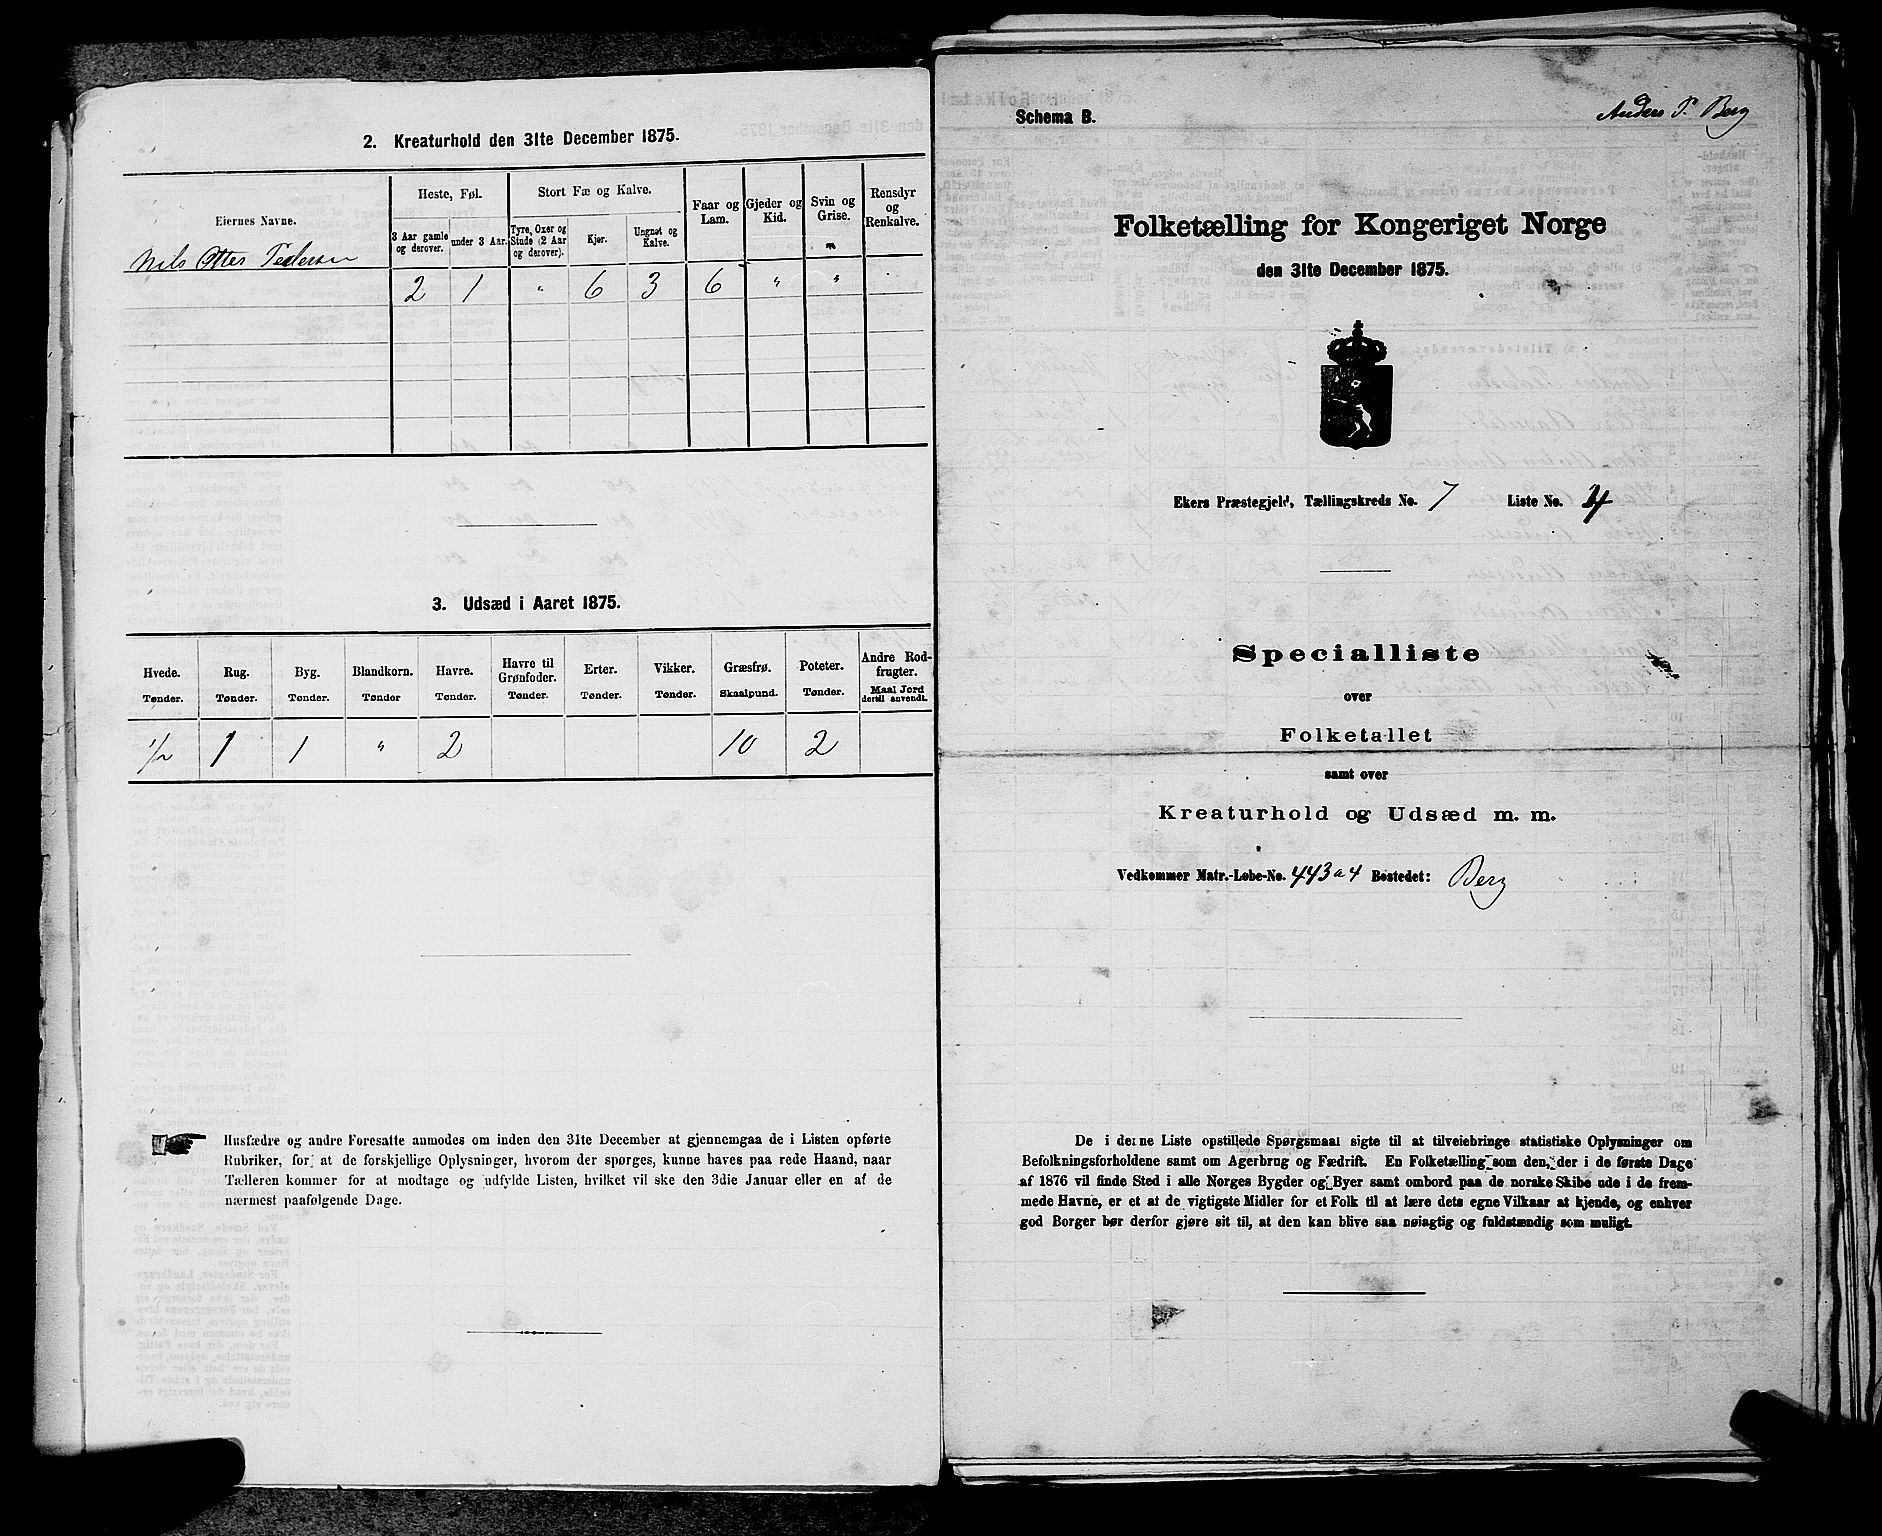 2. Kreaturhold den 31te December 1875.
Eiernes Navne.
Heste, Føl.
Stort Fæ og Kalve.
Faar og Lam.
Gjeder og Kid.
Svin og Grise.
Rensdyr og Renkalve.
3 Aar gamle og derover.
under 3 Aar.
Tyre, Oxer og Stude (2 Aar og derover).
Kjør.
Ungnøt og Kalve.
Nils Otter Pedersen
2 1 " 6 3 6 " "
3. Udsæd i Aaret 1875.
Hvede. Rug. Byg. Blandkorn. Havre. Havre til Grønfoder. Erter. Vikker. Græsfrø. Poteter. Andre Rodfrugter.
Tønder. Tønder. Tønder. Tønder Tønder. Tønder. Tønder. Tønder. Skaalpund. Tønder. Maal Jord dertil anvendt.
1/2 1 1 " 2 10 2
Husfædre og andre Foresatte anmodes om inden den 31te December at gjennemgaa de i Listen opførte
Rubriker, for at de forskjellige Oplysninger, hvorom der spørges, kunne haves paa rede Haand, naar
Tælleren kommer for at modtage og udfylde Listen, hvilket vil ske den 3die Januar eller en af de
nærmest paafølgende Dage.
Schema B.
Anders P. Berg
Folketælling for Kongeriget Norge
den 31te December 1875.
Ekers Præstegjeld, Tællingskreds No. 7 Liste No. 4
Specialliste
over
Folketallet
samt over
Kreaturhold og Udsæd m. m.
Vedkommer Matr.-Løbe-No. 443a4 Bostedet: Berg
De i denne Liste opstillede Spørgsmaal sigte til at tilveiebringe statistiske Oplysninger om
Befolkningsforholdene samt om Agerbrug og Fædrift. En Folketælling som den, der i de første Dage
af 1876 vil finde Sted i alle Norges Bygder og Byer samt ombord paa de norske Skibe ude i de frem-
mede Havne, er et af de vigtigste Midler for et Folk til at lære dets egne Vilkaar at kjende, og enhver
god Borger bør derfor gjøre sit til, at den kan blive saa nøiagtig og fuldstændig som muligt.